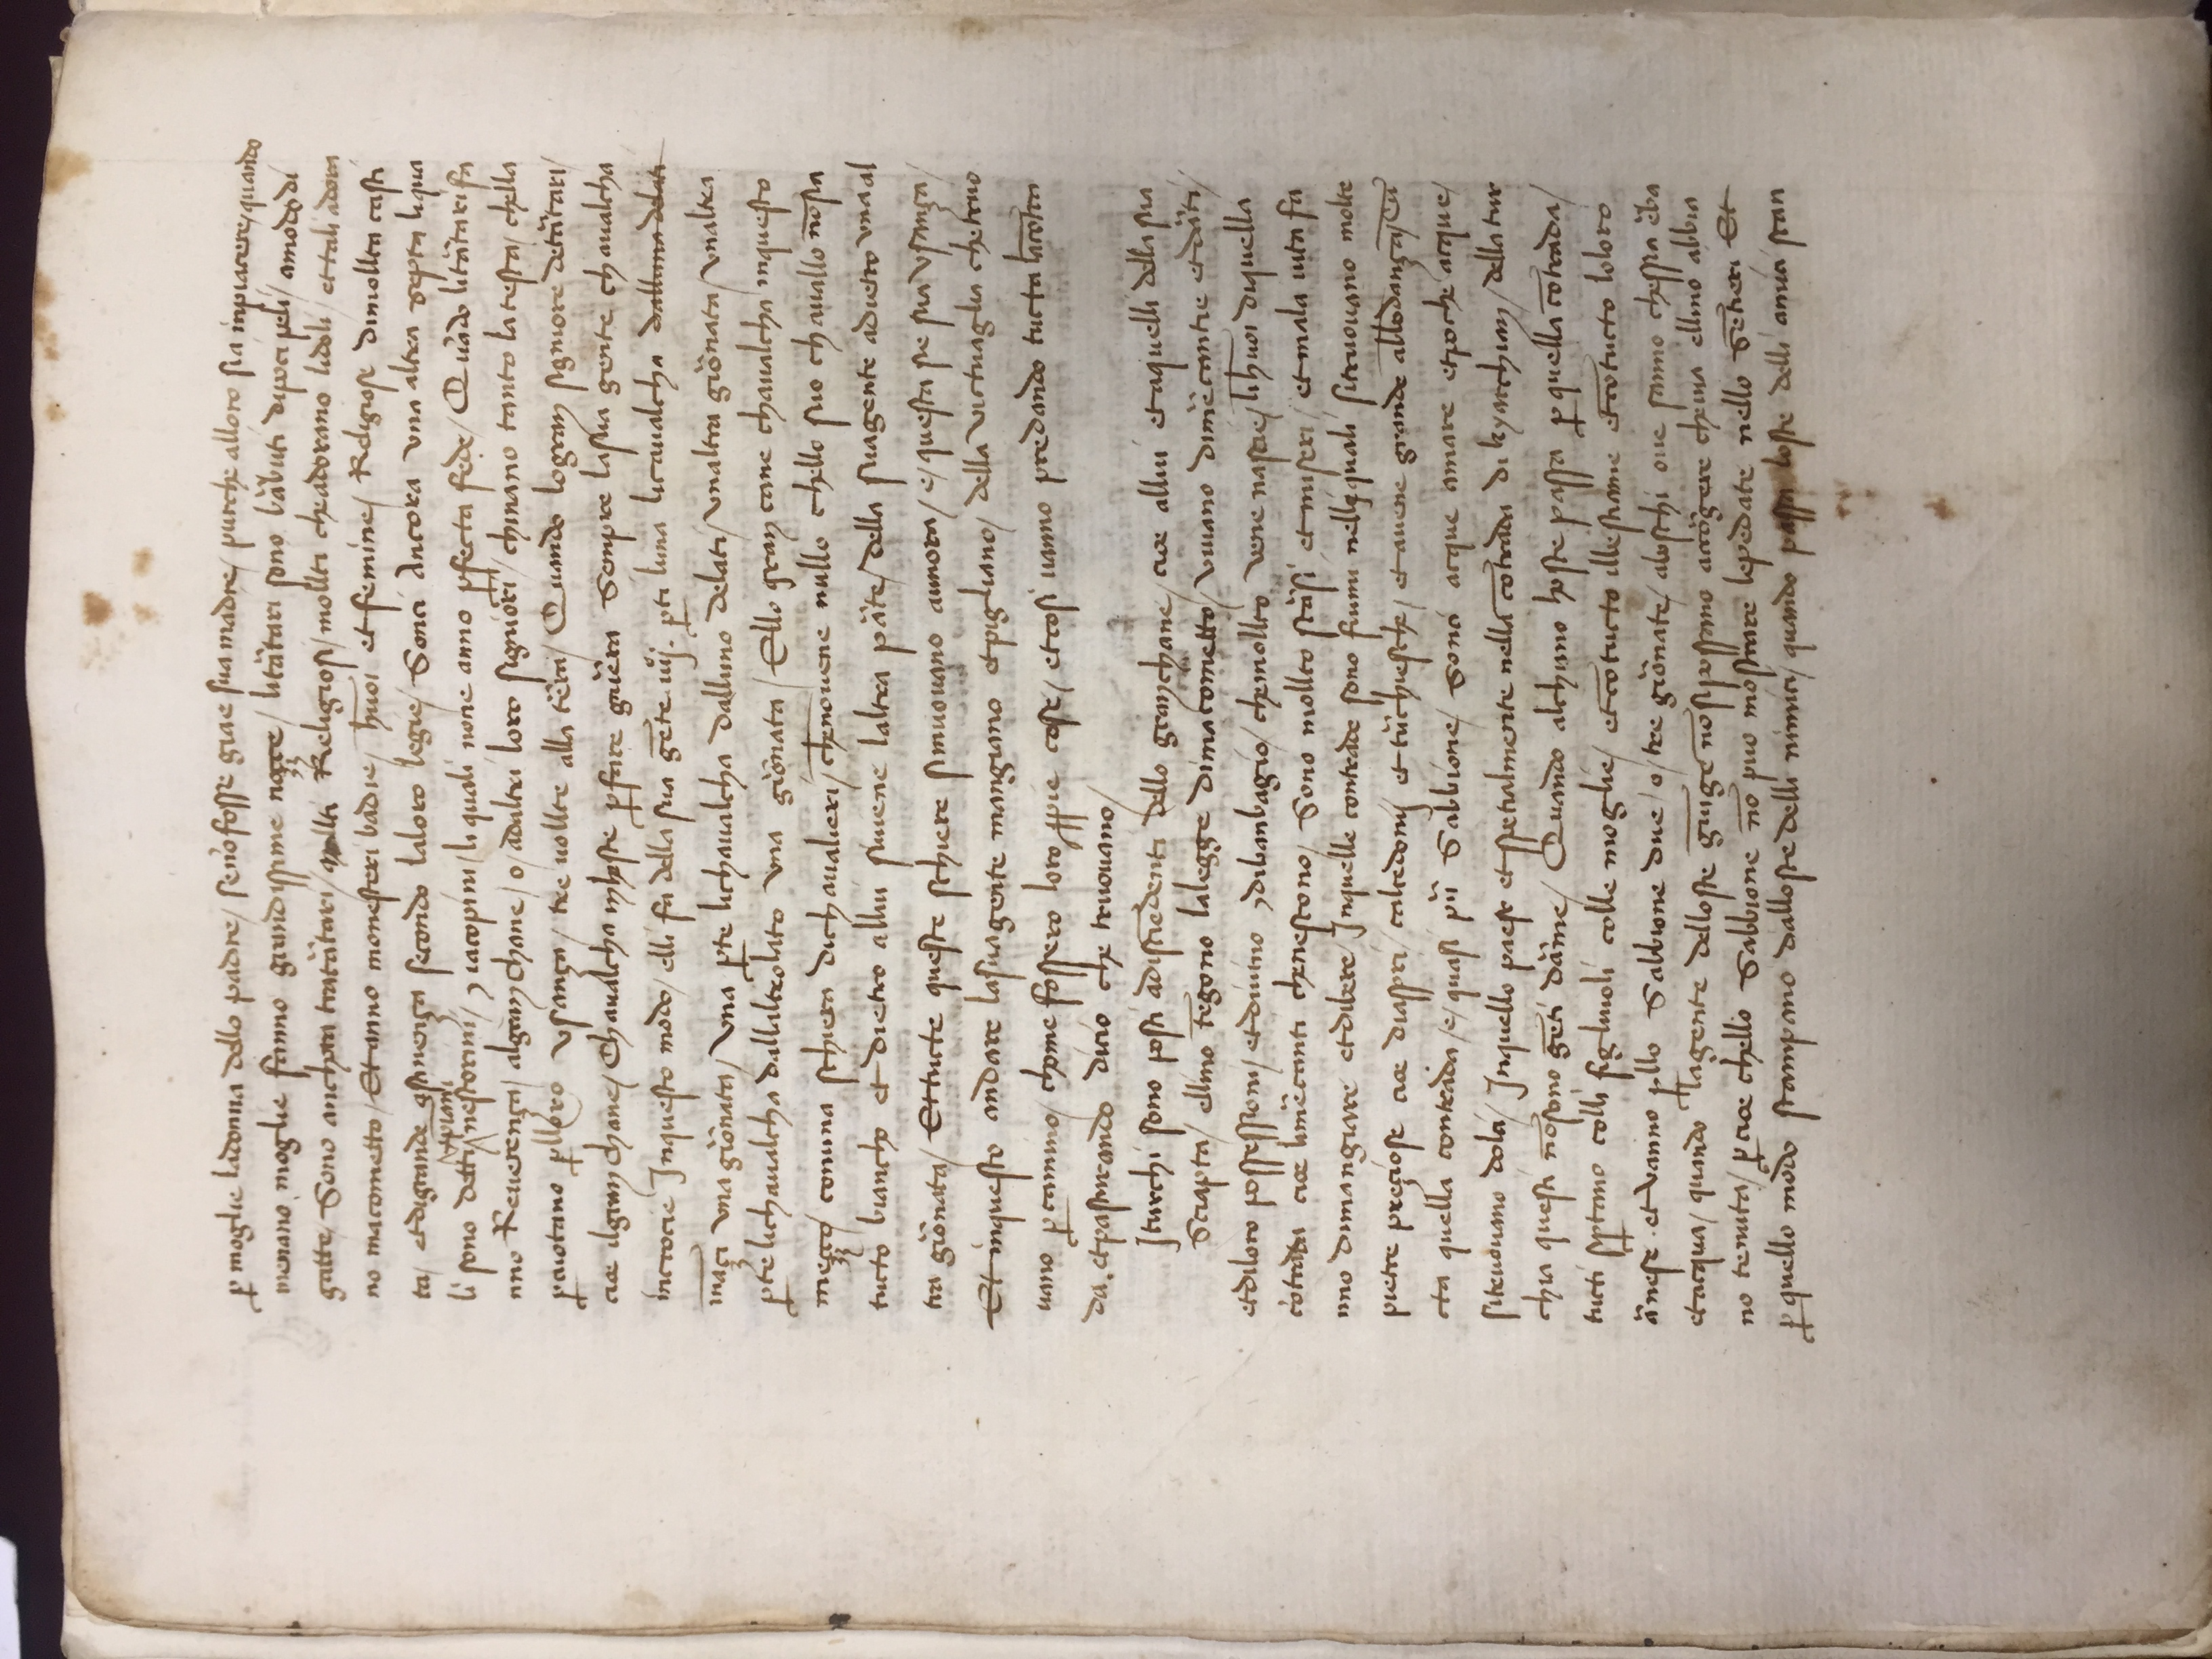 ꝑ moglie ladonna dello padre/ senōfosse giae sua madre/ purche alloro sia inpiacere/ quando
menano moglie fanno grandissime noççe/ litãtari sono bãbuti dipoci peli/ amodo di
gatte/ Sono anchora tratãtari/ mollti Religiosi/ mollti cheadorano lidoli/ ettali adora
no macometto/ Etanno monesteri badie/ hūoi et femine/ Religiose dimollta casti
ta/ etdigrande astinença secondo laloro legie/ Sonci Ancora una altra septa liqua
xpiani
li sono detti nestorini/ ⁊ iacopini/ li quali none anno ꝑfecta fede/ Quādo litãtari fa
nno Reverença/ algran chane/ o/ adaltri loro signiori/ chinano tanto la testa/ chella
ꝑcuotano ꝑlloro usança/ tre vollte alla tẽra/ Quando logran signiore detãtari/
cioe ilgran chane/ Chavalcha inhoste ꝑfare guẽra Sempre lasua gente chavalcha
incrocie Inquesto modo/ elli fa della sua gēte .iiij. ꝑti luna licavalcha dalluna delati
ināçi una giõnata/ una ꝑte lichavalcha dalluno delati/ unaltra giõnata/ unaltra
ꝑte lichavalcha dallaltrolato una giõnata/ Ello gran cane chavalcha inquesto
meçço/ conuna schiera dichavalieri/ chenōvene nullo chello suo chavallo nōsia
tucto biancho et dietro allui sivene laltra pãte/ della suagente adietro una al
tra giõnata/ Ettucte queste schiere simuovano aunora/ e/ questa sie sua usança/
Et inquesto andare lasuagente mangiano etpigliano/ della victuaglia chetruo
vano ꝑcamino/ chome fossero loro ꝓpie cose/ etcosi vanno predando tucta lacōtra
da. etpasturando dicio che truovano/
Iturchi sono posti adiscēdenti dello granchane/ cioe allui etaquelli della sua
Sciapta/ ellino tēgono lalegge dimacometto/ vivano dimẽcantie etdãti/
etdiloro possessioni/ etdivino ⁊dibanbagio/ chemollto vene nascie/ lihūoi diquella
cōtrata cioe limẽcanti chenescono/ Sono mollto scãsi et miseri/ et mala vita fa
nno dimangiare etdibere/ Inquelle contrade sono fiumi nelliquali sitruovano molte
pietre preçiose cioe diaspri/ calcedonij et tũchiesche/ et avene grande abbōdança/ Tu
cta quella contrada/ e/ quasi pũ Sabbione/ Sonci acque amare etpoche acque/
sitruovano dolci/ Inquello paese et spetialmente nella cōtrada di kyarchian/ della tur
chia questi nōsono gēti dãme/ Quando alchuno hoste passa ꝑ quella cōtrada/
tucti sꝑtano colli figliuoli colle moglie/ etcōtucto ilbestiame etcōtucto loloro
ãnese. et vanno ꝑllo Sabbione due/ o/ tre giõnate/ aboschi ove sanno chessia ẽba
etacqua/ quando lagente delloste giūge nōsipossano accõgere chevia ellino abbia
no tenuta/ ꝑcioe chello Sabbione nō puo mostrare lepedate nello Sētieri Et
ꝑ quello modo scampano dalloste delli nimici/ quando passa loste delli amici stan